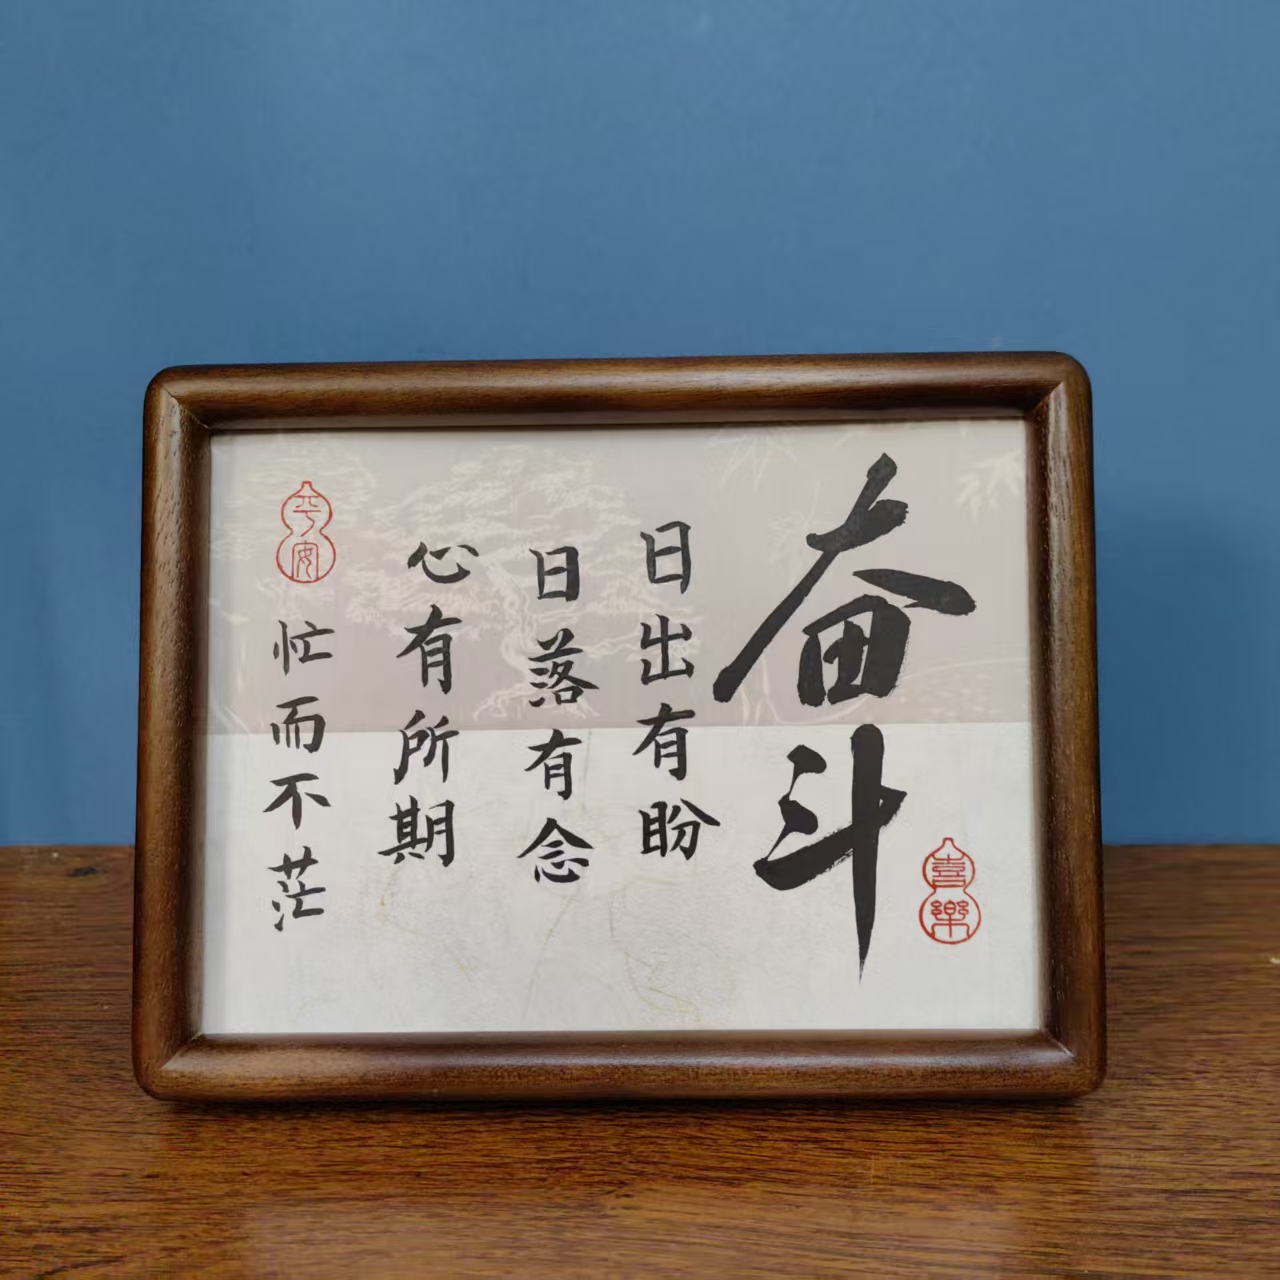 奋斗
喜樂
日出有盼
日落有念
心有所期
忙而不茫
平安